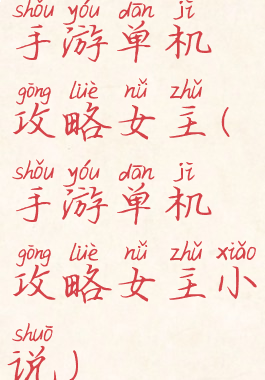 shǒu yóu dān jī
手游单机
gōng lüè nǚ zhǔ
攻略女主(
shǒu yóu dān jī
手游单机
gōng lüè nǚ zhǔ xiǎo
攻略女主小
shuō
说)